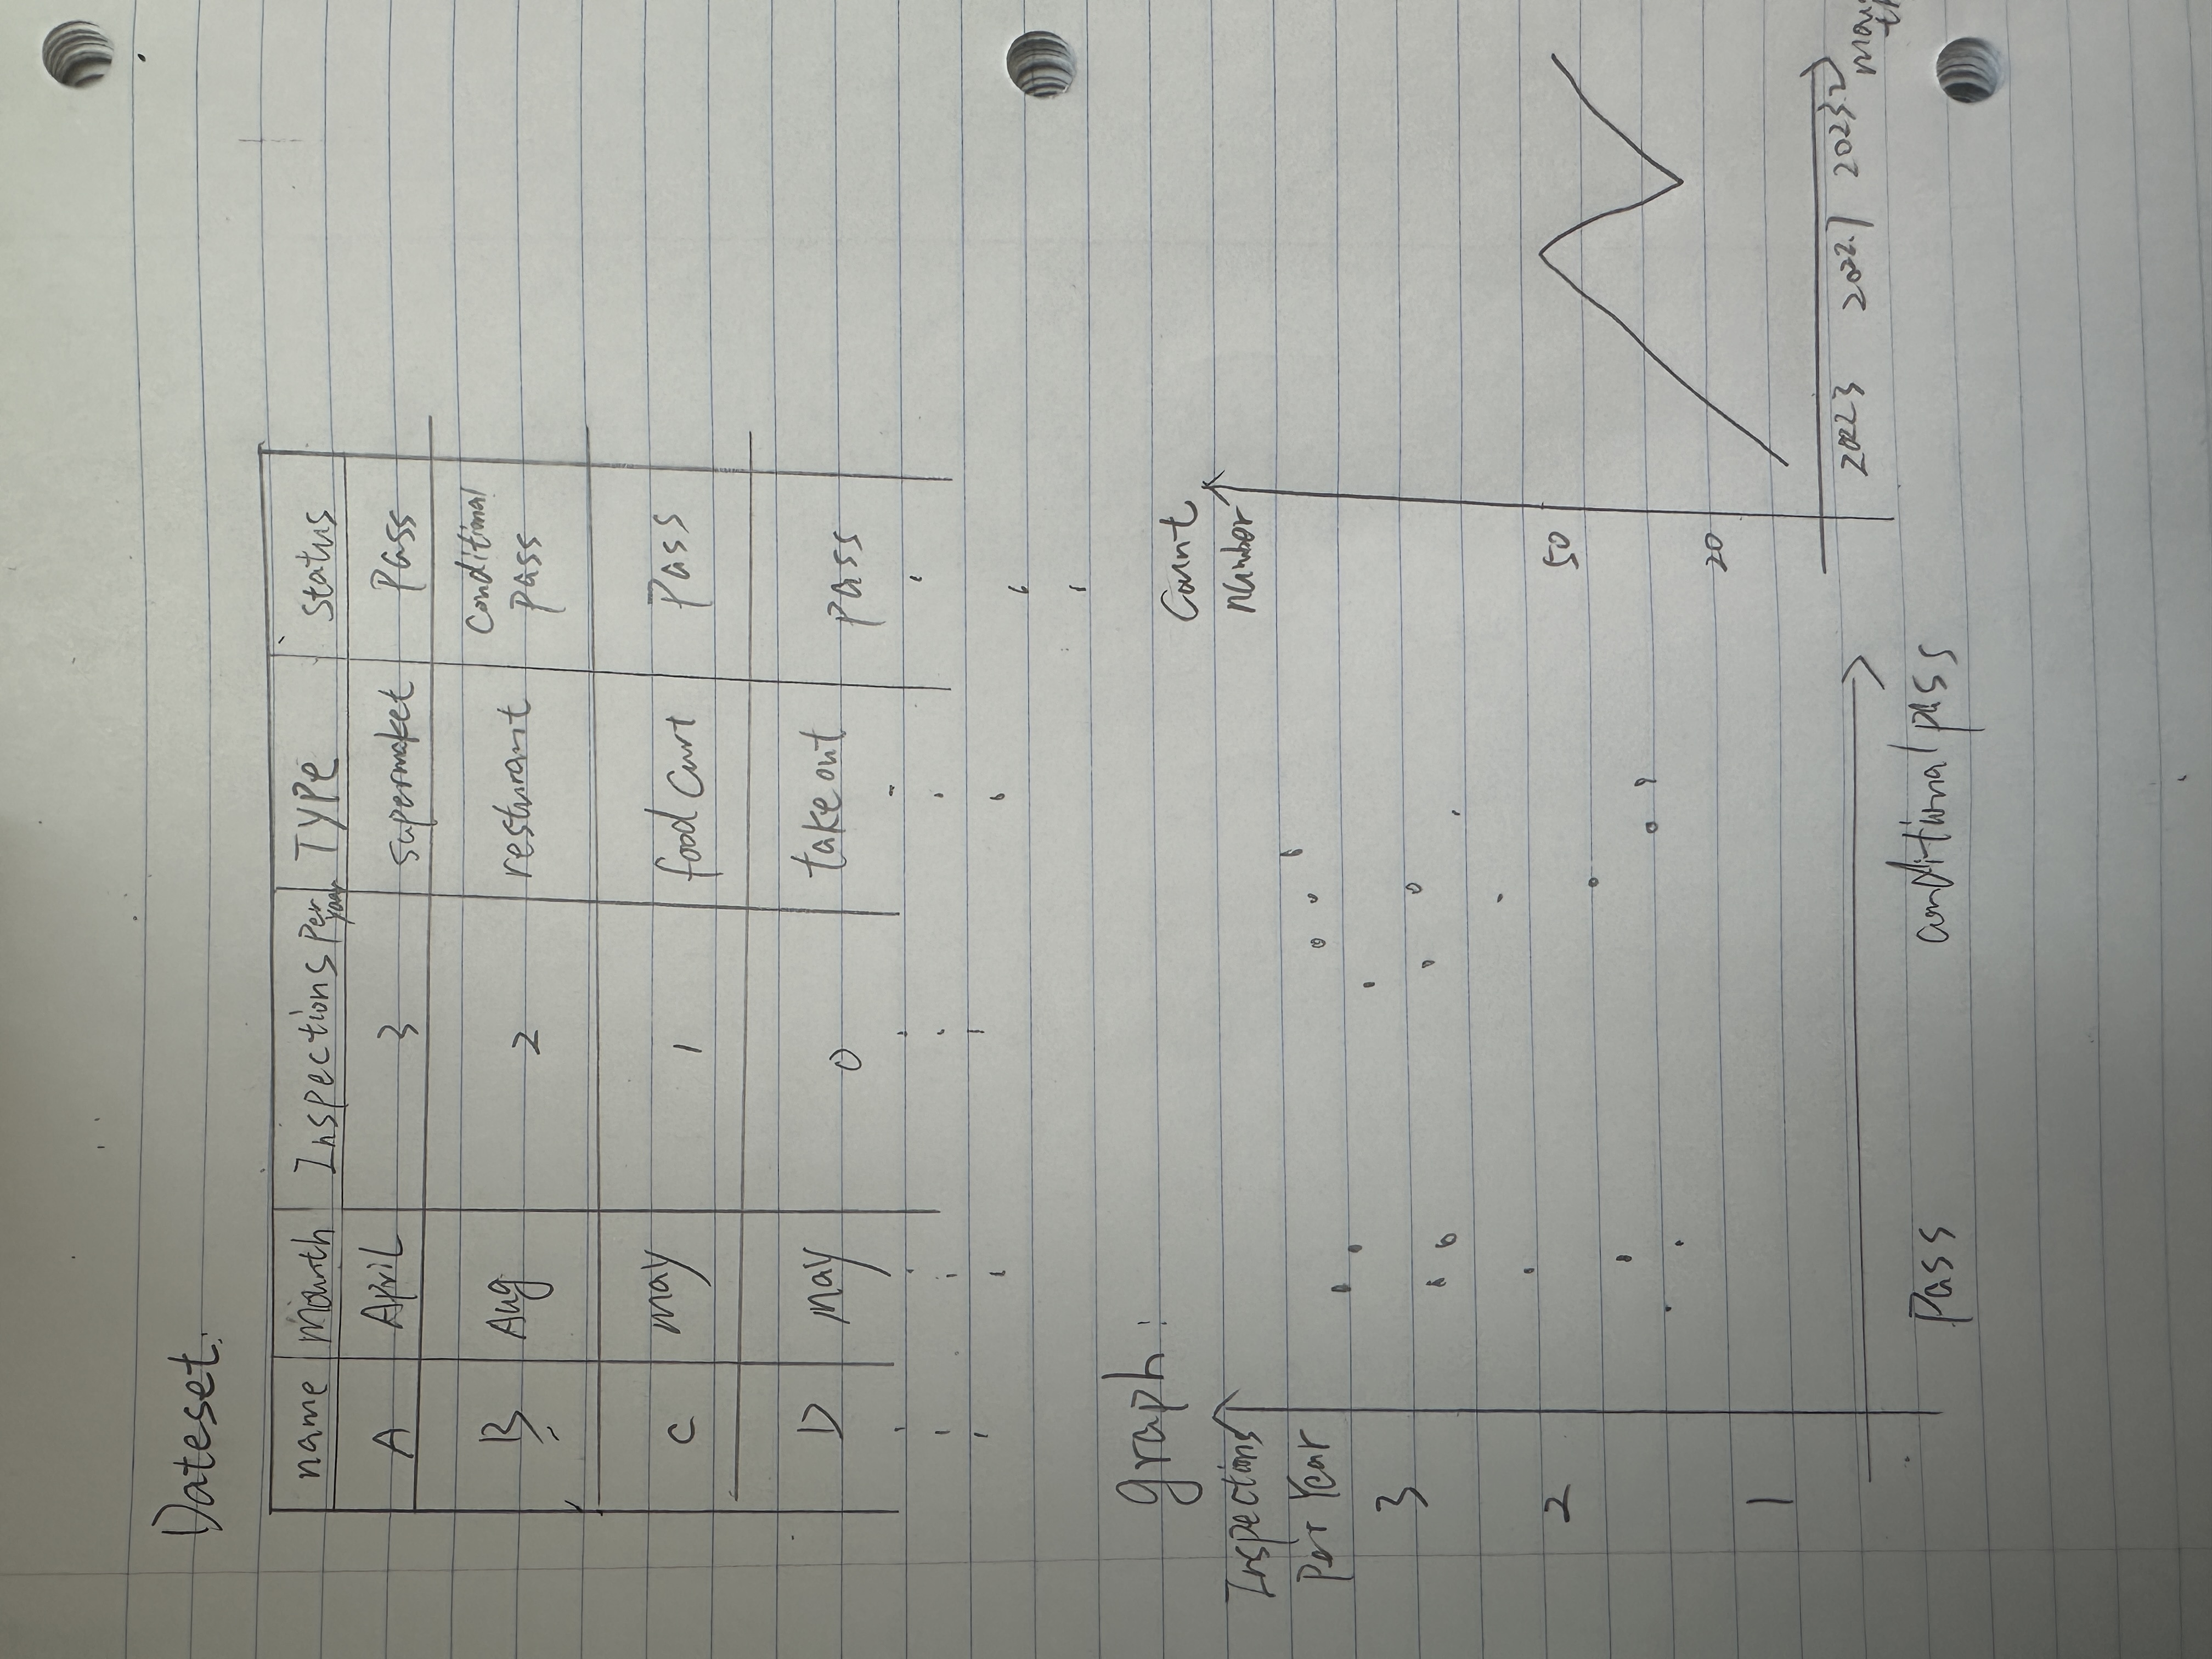 Dateset:
name mounth Inspections Per year TYPe status
A April 3 supermaket Pass
B Aug 2 resturant Conditional pass
C may 1 food Curt Pass
D may 0 take out pass
graph:
Inspections
Per Year
3
2
1
Pass conditional pass
Count
number
50
20
2022.3 2022.7 2023.2
moun
th